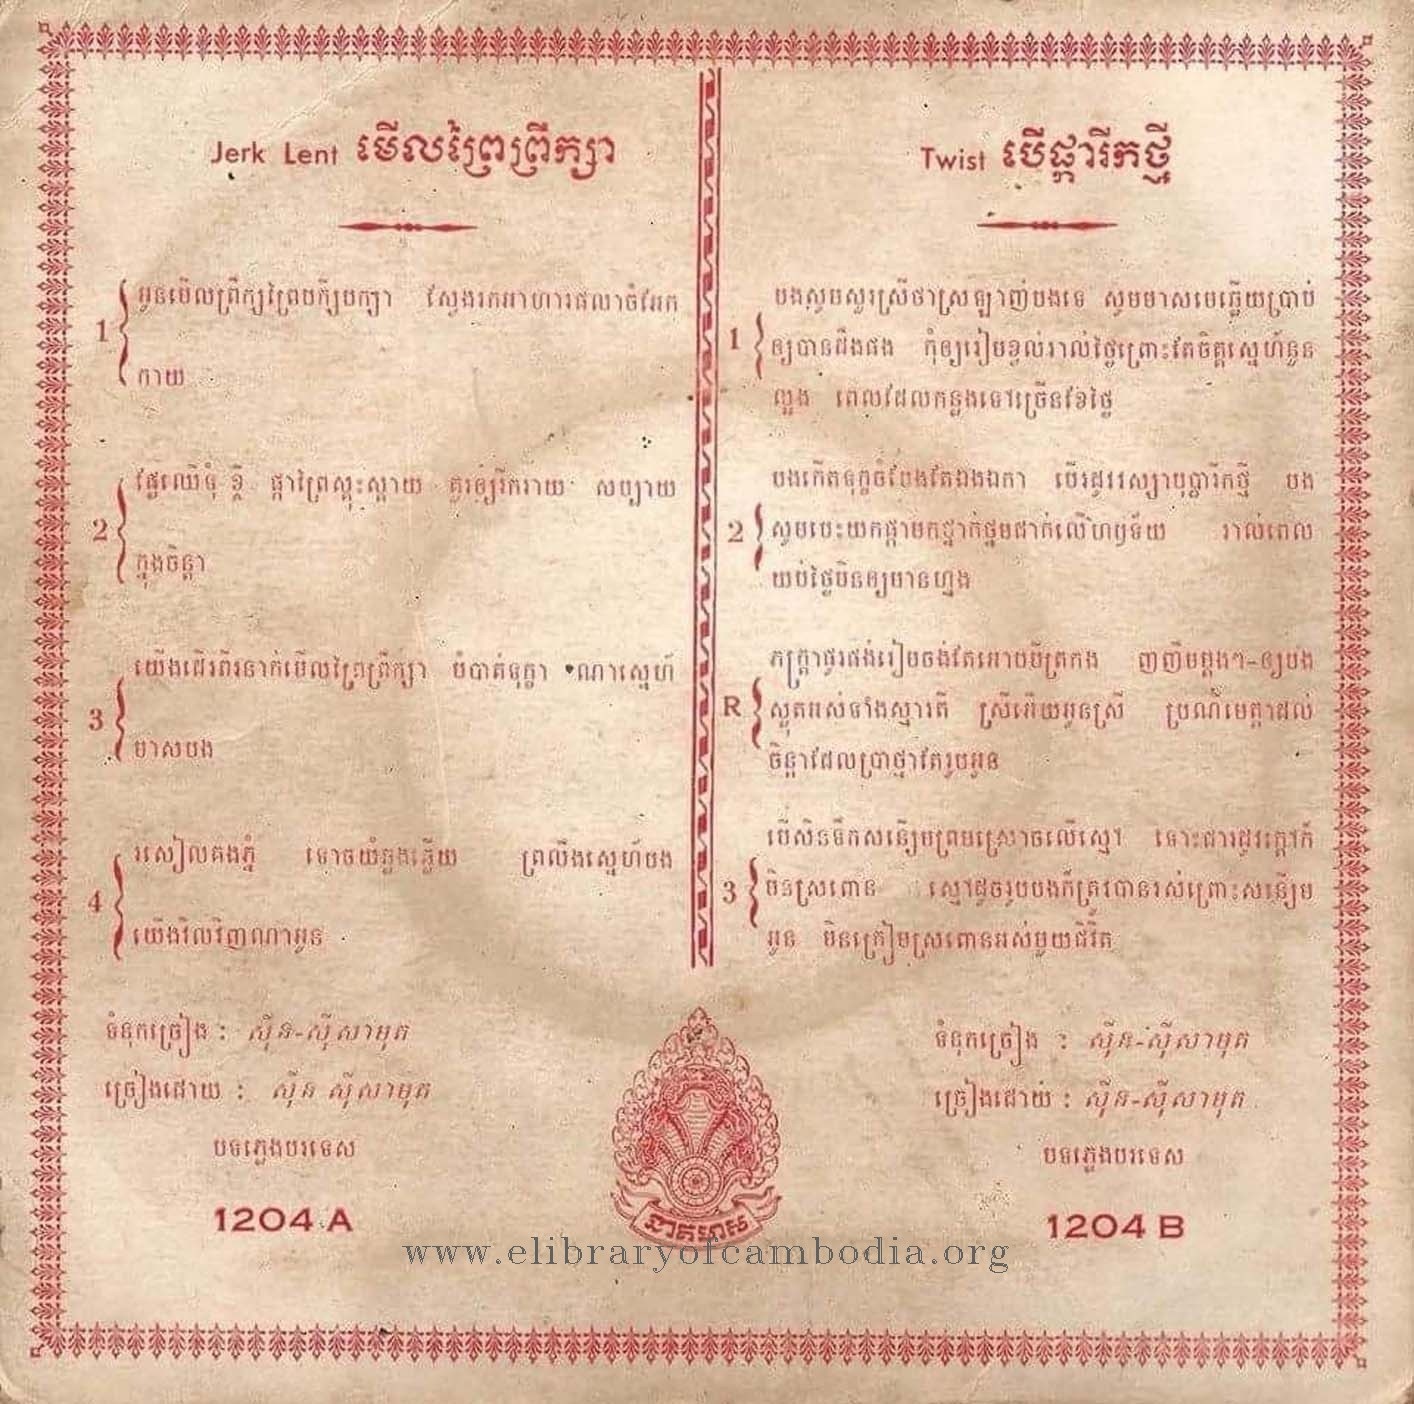 Jerk Lent មើលព្រៃព្រឹក្សា
1
អូនមើលព្រឹក្សព្រៃបក្សីបក្សា ស្វែងរកអាហារផលាចំអែក
កាយ
2
ផ្លែឈើទុំ ខ្ចី ផ្កាព្រៃស្គុះស្គាយ គួរឲ្យរីករាយ សប្បាយ
ក្នុងចិន្តា
3
យើងដើរពីរនាក់មើលព្រៃព្រឹក្សា បំបាត់ទុក្ខា ណាស្នេហ៍
មាសបង
4
រសៀលគងភ្នំ ទោចយំឆ្លងឆ្លើយ ព្រលឹងស្នេហ៍បង
យើងវិលវិញណាអូន
ទំនុកច្រៀង : ស៊ីន-ស៊ីសាមុត
ច្រៀងដោយ : ស៊ីន ស៊ីសាមុត
បទភ្លេងបរទេស
1204 A
Twist បើផ្ការីកថ្មី
1
បងសូមសួរស្រីថាស្រឡាញ់បងទេ សូមមាសមេឆ្លើយប្រាប់
ឲ្យបានដឹងផង កុំឲ្យរៀមខ្វល់រាល់ថ្ងៃព្រោះតែចិត្តស្នេហ៍នួន
ល្អង ពេលដែលកន្លងទៅច្រើនខែថ្ងៃ
2
បងកើតទុក្ខចំបែងតែឯងឯកា បើរដូវវស្សាបុប្ផារីកថ្មី បង
សូមបេះយកផ្កាមកថ្នាក់ថ្នមដាក់លើហឫទ័យ រាល់ពេល
យប់ថ្ងៃមិនឲ្យមានហ្មង
R
ភក្ត្រាផូរផង់រៀមចង់តែអោបបីត្រកង ញញឹមម្តងៗ-ឲ្យបង
ស្លុតអស់ទាំងស្មារតី ស្រីអើយអូនស្រី ប្រណីមេត្តាដល់
ចិន្តាដែលប្រាថ្នាតែរូបអូន
3
បើសិនទឹកសន្សើមព្រមស្រោចលើស្មៅ ទោះជារដូវក្តៅក៏
មិនស្រពោន ស្មៅដូចរូបបងក៏ត្រូវបានរស់ព្រោះសន្សើម
អូន មិនក្រៀមស្រពោនអស់មួយជីវិត
ទំនុកច្រៀង : ស៊ីន-ស៊ីសាមុត
ច្រៀងដោយ : ស៊ីន-ស៊ីសាមុត
បទភ្លេងបរទេស
1204 B
នាគមាស
www.elibraryofcambodia.org